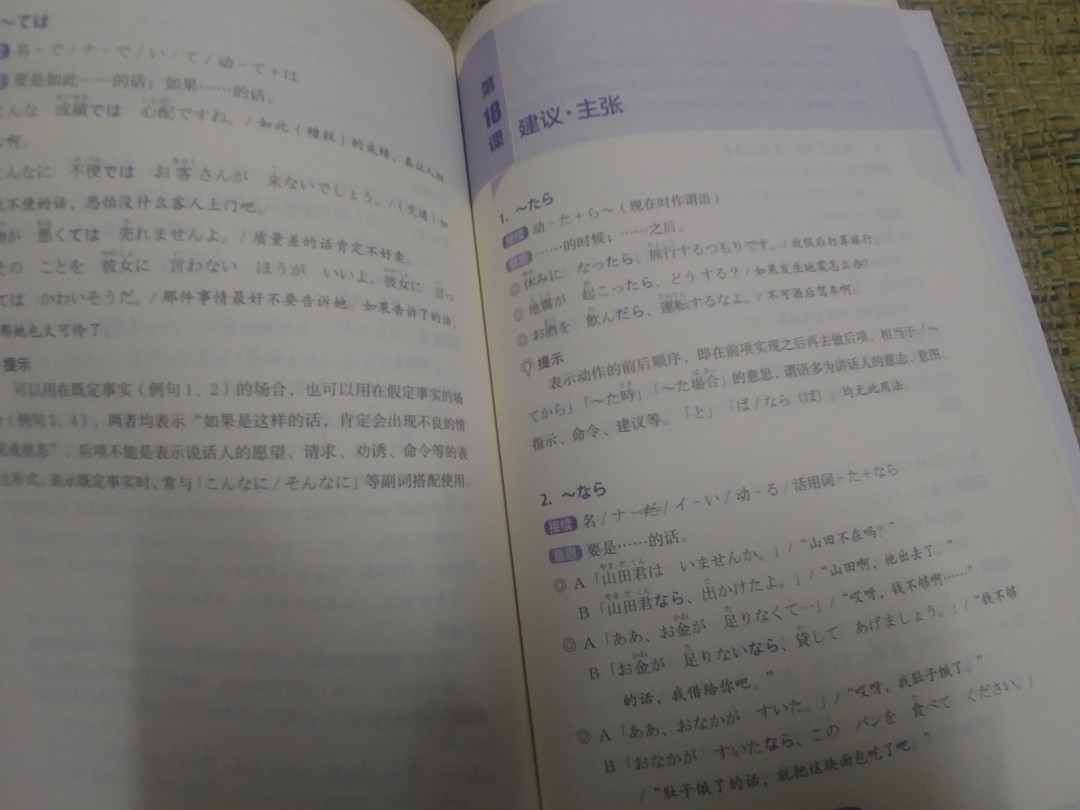 ～ては
名－で/ナ－で/い－て/动－て＋は
要是如此……的话；如果……的话。
成績では 心配ですね。/如此（糟糕）的成绩，真让人担
啊。
んなに 不便では お客さんが 来ないでしょう。/（交通）如
不便的话，恐怕没什么客人上门吧。
が 悪くては 売れませんよ。/质量差的话肯定不好卖。
その ことを 彼女に 言わない ほうが いいよ。彼女に 言っ
ては かわいそうだ。/那件事情最好不要告诉她。如果告诉了的话，
那她也太可怜了。
提示
可以用在既定事实（例句1、2）的场合，也可以用在假定事实的场
（例句3、4），两者均表示“如果是这样的话，肯定会出现不良的情
况或状态”，后项不能是表示说话人的愿望、请求、劝诱、命令等的表
达形式。表示既定事实时，常与「こんなに/そんなに」等副词搭配使用。
第18课
建议·主张
1. ～たら
接续 动－た＋ら～（现在时作谓语）
意思 ……的时候；……之后。
◎ 休みに なったら、旅行するつもりです。/放假后打算旅行。
◎ 地震が 起こったら、どう する？/如果发生地震怎么办？
◎ お酒を 飲んだら、運転するなよ。/不可酒后驾车啊。
提示
表示动作的前后顺序，即在前项实现之后再去做后项。相当于「～
てから」「～た時」「～た場合」的意思，谓语多为讲话人的意志、意图、
指示、命令、建议等。「と」「ば/なら（ば）」均无此用法。
2. ～なら
接续 名/ナ－だ/イ－い/动－る/活用词－た＋なら
意思 要是……的话。
◎ A「山田君は いませんか。」/“山田不在吗？”
B「山田君なら、出かけたよ。」/“山田啊，他出去了。”
◎ A「ああ、お金が 足りなくて…」/“哎呀，钱不够啊……”
B「お金が 足りないなら、貸して あげましょう。」/“钱不够
的话，我借给你吧。”
◎ A「ああ、おなかが すいた。」/“哎呀，我肚子饿了。”
B「おなかが すいたなら、この パンを 食べて ください。」
/“肚子饿了的话，就把这块面包吃了吧。”